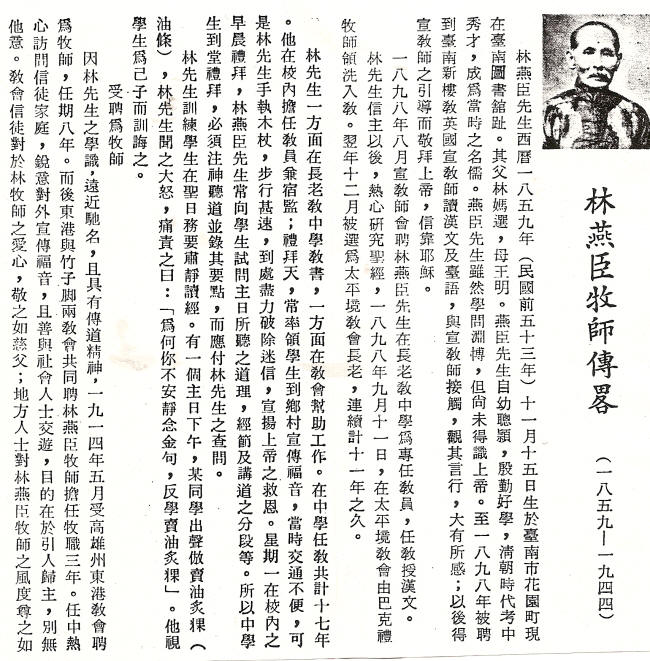 林燕臣牧師傳畧
(一八五九—一九四四)
林燕臣先生西曆一八五九年(民國前五十三年)十一月十五日生於臺南市花園町現
在臺南圖書舘趾。其父林媽選,母王明。燕臣先生自幼聰頴,殷勤好學,淸朝時代考中
秀才,成爲當時之名儒。燕臣先生雖然學問淵博,但尙未得識上帝。至一八九八年被聘
到臺南新樓敎英國宣敎師讀漢文及臺語,與宣敎師接觸,觀其言行,大有所感;以後得
宣敎師之引導而敬拜上帝,信靠耶穌。
一八九八年八月宣敎師會聘林燕臣先生在長老敎中學爲專任敎員,任敎授漢文。
林先生信主以後,熱心研究聖經,一八九八年九月十一日,在太平境敎會由巴克禮
牧師領洗入敎。翌年十二月被選爲太平境敎會長老,連續計十一年之久。
林先生一方面在長老敎中學敎書,一方面在敎會幫助工作。在中學任敎共計十七年
。他在校內擔任敎員兼宿監;禮拜天,常率領學生到鄉村宣傳福音,當時交通不便,可
是林先生手執木杖,步行甚速,到處盡力破除迷信,宣揚上帝之救恩。星期一在校內之
早晨禮拜,林燕臣先生常向學生試問主日所聽之道理,經節及講道之分段等。所以中學
生到堂禮拜,必須注神聽道並錄其要點,而應付林先生之查問。
林先生訓練學生在聖日務要肅靜讀經。有一個主日下午,某同學出聲倣賣油炙粿(
油條),林先生聞之大怒,痛責之曰:「爲何你不安靜念金句,反學賣油炙粿」。他視
學生爲己子而訓誨之。
受聘爲牧師
因林先生之學識,遠近馳名,且具有傳道精神,一九一四年五月受高雄州東港敎會聘
爲牧師,任期八年。而後東港與竹子脚兩敎會共同聘林燕臣牧師擔任牧職三年。任中熱
心訪問信徒家庭,銳意對外宣傳福音,且善與社會人士交遊,目的在於引人歸主,別無
他意。敎會信徒對於林牧師之愛心,敬之如慈父;地方人士對林燕臣牧師之風度尊之如